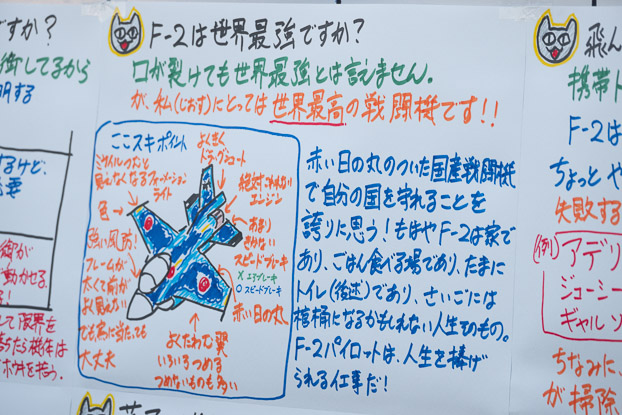 すか?
街してるから
明する
するけど、
御が
動かせる
して限界を
F-2は世界最強ですか?
口が裂けても世界最強とは言えません。
が、私(じおす)にとっては世界最高の戦闘機です!!
ここスキポイント
よくきく
ドラッグシュート
ミサイルうつと
見えなくなるフォーメーション
ライト
絶対こわれない
エンジン
色→
強い風防!
フレームが
太くて前が
よく見えない
でも鳥に当たっても
大丈夫
あまり
きかない
スピードブレーキ
×エアブレーキ
○スピードブレーキ
赤い日の丸
よくたわむ翼
いろいろつめる
つめないものも多い
赤い日の丸のついた国産戦闘機
で自分の国を守れることを
誇りに思う!もはやF-2は家で
あり、ごはん食べる場であり、たまに
トイレ(後述)であり、さいごには
棺桶になるかもしれない人生そのもの。
F-2パイロットは、人生を捧げ
られる仕事だ!
飛ん
携帯ト
F-2は
ちょっとや
失敗する
(例)アデリ
ジョーシー
ギャルソ
ちなみに、
が掃除